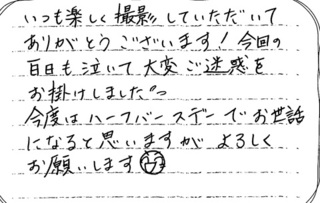 いつも楽しく撮影していただいて
ありがとうございます！今回の
百日も泣いて大変ご迷惑を
お掛けしました💦
今度はハーフバースデーでお世話
になると思いますが よろしく
お願いします